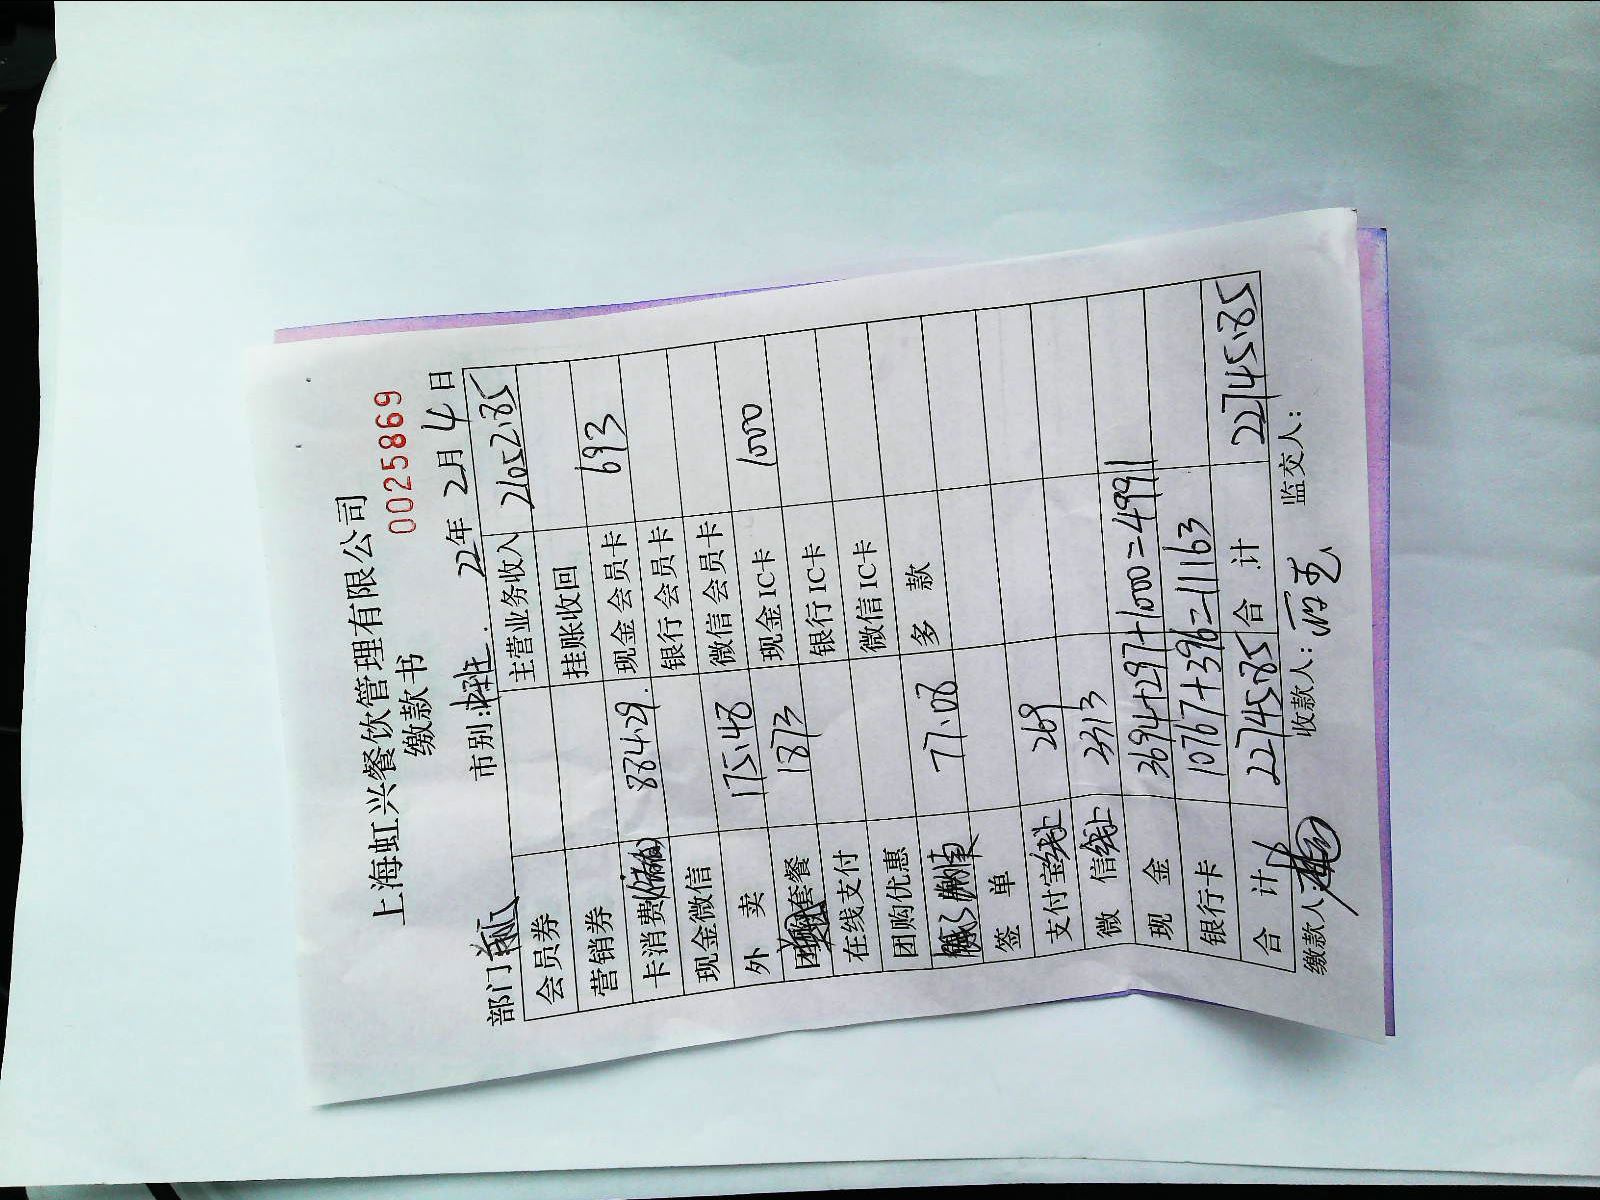 上海虹兴餐饮管理有限公司
缴款书
0025869
部门 市别: 22年2月4日
会员券 主营业务收入 21052.85
营销券 挂账收回
卡消费 884.29. 现金会员卡 693
现金微信 银行会员卡
外卖 175.48 微信会员卡
套餐 1873 现金IC卡 1000
在线支付 银行IC卡
团购优惠 微信IC卡
77.08 多款
签单
支付宝线上 269
微信线上 2313
现金 3694+297+1000=4991
银行卡 10767+396=11163
合计 22745.85 合计 22745.85
缴款人: 收款人: 监交人: